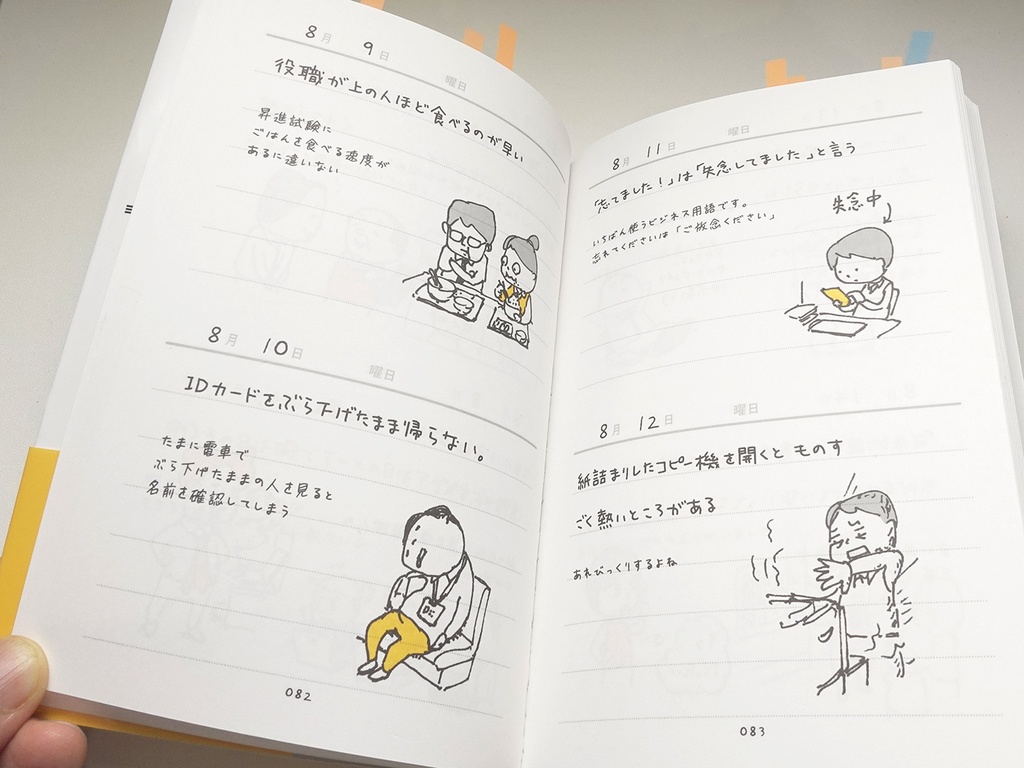 8月 9日 曜日
役職が上の人ほど食べるのが早い
昇進試験に
ごはんを食べる速度が
あるに違いない
8月 10日 曜日
IDカードをぶら下げたまま帰らない。
たまに電車で
ぶら下げたままの人を見ると
名前を確認してしまう
082
8月 11日 曜日
「忘てました!」は「失念してました」と言う
いちばん使うビジネス用語です。
忘れてくださいは「ご放念ください」
失念中
8月 12日 曜日
紙詰まりしたコピー機を開くと ものす
ごく熱いところがある
あれびっくりするよね
083